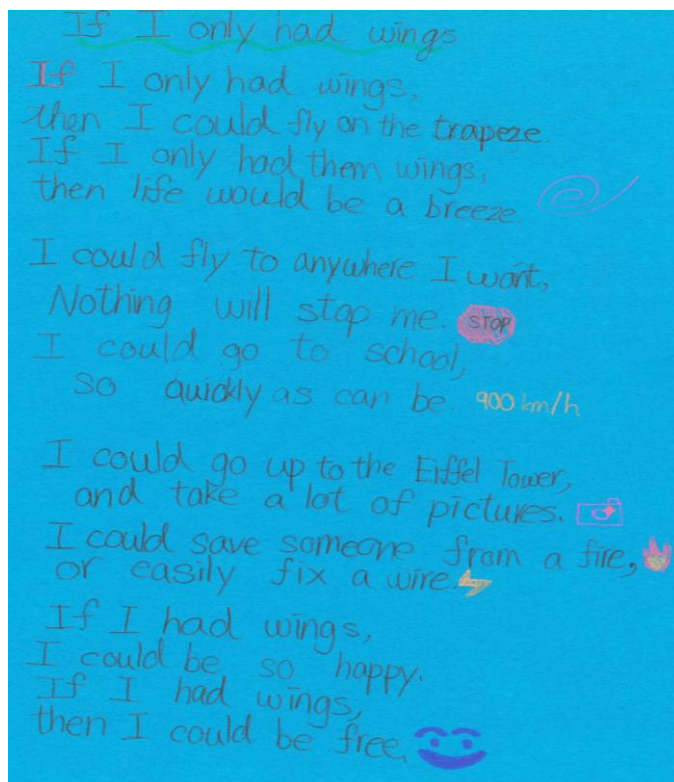 If I only had wings
If I only had wings,
then I could fly on the trapeze.
If I only had them wings,
then life would be a breeze
I could fly to anywhere I want,
Nothing will stop me. STOP
I could go to school,
so quickly as can be. 900 km/h
I could go up to the Eiffel Tower,
and take a lot of pictures.
I could save someone from a fire,
or easily fix a wire.
If I had wings,
I could be so happy.
If I had wings,
then I could be free.